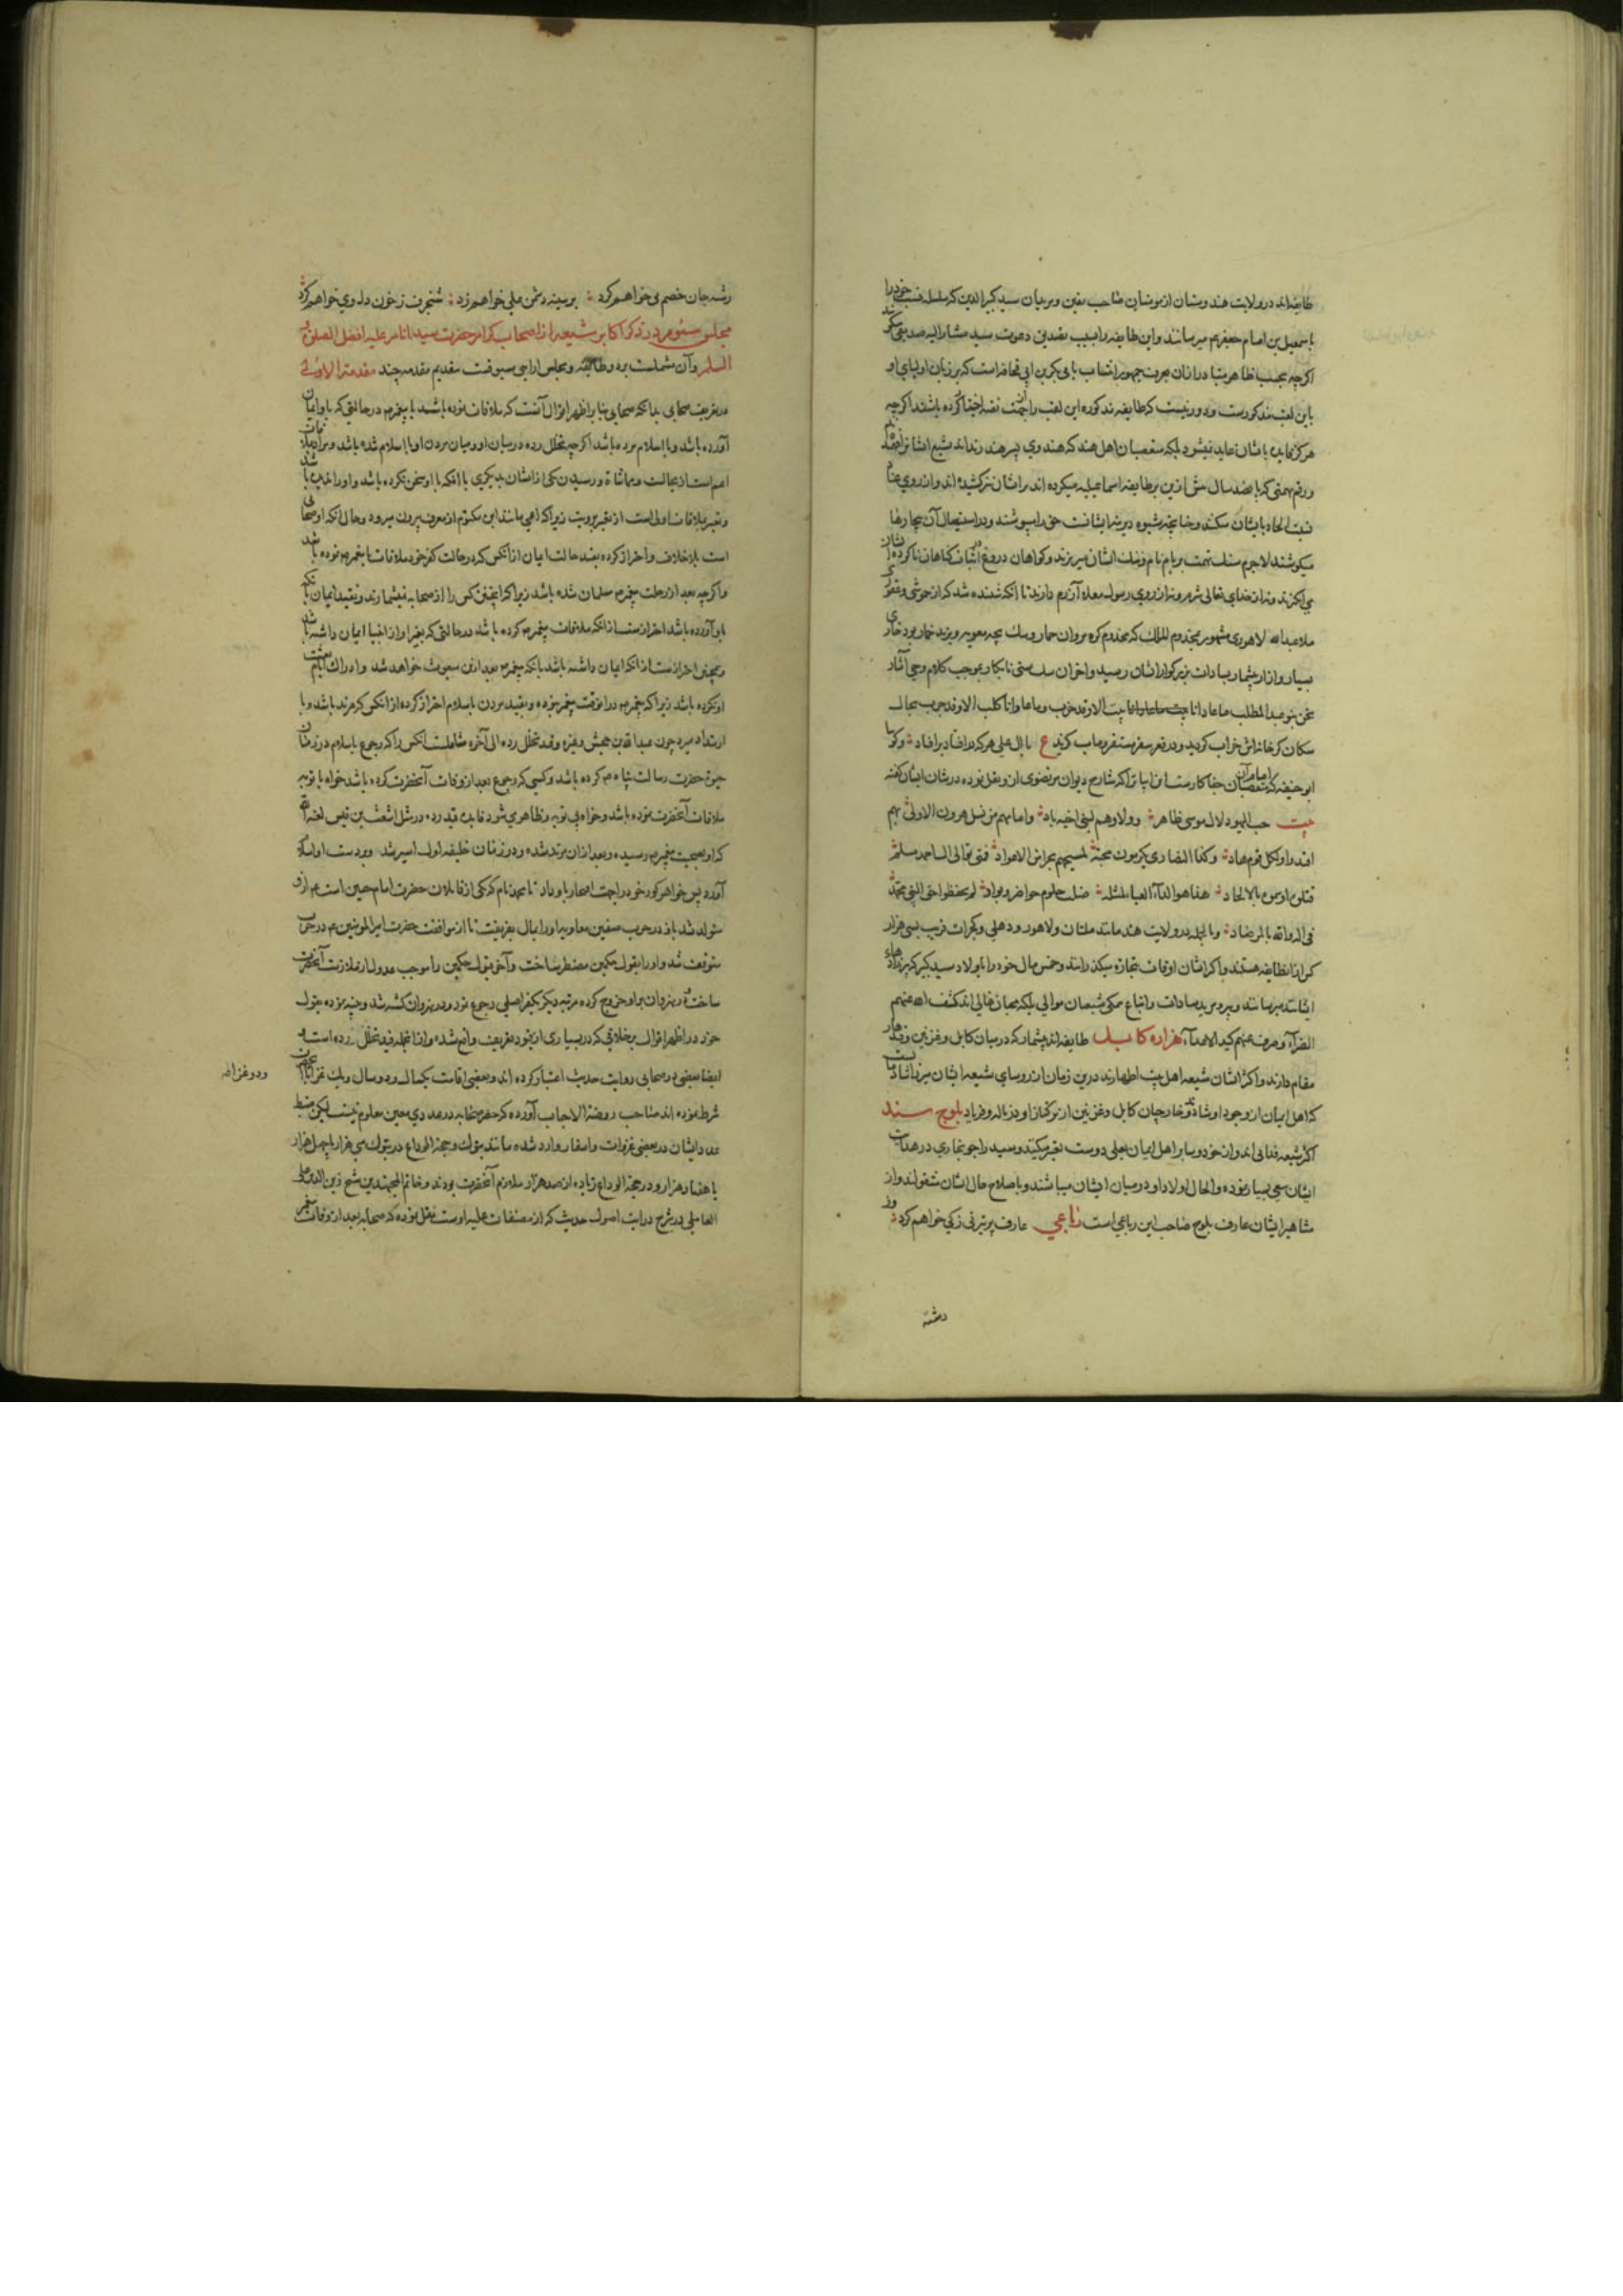 طایفه اند در ولایت هندوستان از مومنان صاحب یقین و مریدان سید کبیر الدین که سلسله نسب خود را
باسمعیل بن امام جعفر م میرسانند و این طایفه را بسبب تصدیق دعوت سید مشار الیه صدیقی گویند
اگر چه بحسب ظاهر متبادر اذان بعرف جمهور انتساب بابی بکر بن ابی قحافه است که بر زبان اولیای او
باین لقب مذکورست و دور نیست که طایفه مذکوره این لقب را از جهت تقیه اختیار کرده باشند اگر چه
هرگز فایده بایشان عاید نمیشود بلکه متعصبان اهل هند که هندوی پسر هند رند اند تشیع ایشان را
و رقم تهمتی که پانصد سال پیش ازین بر طایفه اسماعیلیه میکرده اند بر ایشان نیز کشیده اند و از روی عناد
نسبت الحاد بایشان میکنند و چنانچه شیوه دیرینه ایشانست حق را میپوشند و در استیصال آن بیچارها
میکوشند لاجرم سنک تهمت بر بام نام و ننک ایشان میریزند و گواهان دروغ در اثبات گناهان ناکرده ایشان
می انگیزند و نه از خدای تعالی شرم و نه از روی رسول معلا آزرم دارند تا آنکه شنیده شد که از
ملا عبد الله لاهوری مشهور بمخدوم الملک که مخدوم کره مروان حمار و سک بچه معویه و یزید خمار بود
بسیار و آزار بیشمار بسادات بزرگوار ایشان رسید و آخر آن سک سنی نابکار بموجب کلام وحی آثار
نحن بنو عبد المطلب ما عادانا بیت الا وقد خرب و ما عاوانا کلب الا وقد جرب بحال
سکان کرخانه اش خراب گردید و در قعر سقر مستقر و مآب گزید ع با ال علی هر که در افتاد بر افتاد و گویا
ابو حنیفه که امام آن متعصبان جفاکارست این ابیات را که شارح دیوان مرتضوی ازو نقل نموده در شان ایشان گفته
بیت حب الیهود لال موسی ظاهر و ولاوهم لبنی اخیه باد و امامهم من نسل هرون الاولی بهم
اقتدوا ولکل قوم هاد و کذا النصاری یکرمون محبة لمسیحهم نجرا من الاعواد فمتی توالی ال احمد مسلم
قتلوه او سموه بالالحاد هذا هو الداء العیاء لمثله ضلت حلوم حواضر و بواد لم یحفظوا حق النبی محمد
فی اله والله بالمرصاد و بالجمله در ولایت هند مانند ملتان و لاهور و دهلی و گجرات قریب بسی هزار
کس از انطایفه هستند و اکثر ایشان اوقات بتجارة میگذرانند و خمس مال خود را باولاد سید کبیر که پیرزادهاء
ایشانند میرسانند و پیر و مرید سادات و اتباع همکی شیعیان موالی بلکه محبان غالی اند کشف الله عنهم
الضراء و صرف عنهم کید الاعداء هزاره کابل طایفه اند بیشمار که در میان کابل و غزنین و قندهار
مقام دارند و اکثر ایشان شیعه اهل بیت اطهارند و درین زمان از روسای شیعه ایشان میرزا شادمانست
که اهل ایمان از وجود او شادند و خارجیان کابل و غزنین از ترکتاز او در ناله و فریاد بلوچ سند
اکثر شیعه فدایی اند و از خود و سایر اهل ایمان بعلی دوست تعبیر میکنند و سید راجو بخاری در هدایت
ایشان سعی بسیار نموده والحال اولاد او در میان ایشان میباشند و باصلاح حال ایشان مشغولند و از
مشاهیر ایشان عارف بلوچ صاحب این رباعی است رباعی عارف پر تیر نی زنی خواهم کرد وز
رشته
رشته جان خصم پی خواهم کرد بر سینه دشمن علی خواهم زد شنجرف ز خون دل وی خواهم کرد
مجلس سئوم در ذکر اکابر شیعه از اصحاب کرام حضرت سید انام علیه افضل الصلوة و
السلم و آن مشتملست بر دو طایفه و مجلس ارایی مسبوقست بتقدیم مقدمه چند مقدمة الاولی
در تعریف صحابی بدانکه صحابی بنابر اظهر اقوال آنست که ملاقات نموده باشد با پیغمبر م در حالتی که باو ایمان
آورده باشد و با اسلام مرده باشد اگر چه تخلل رده در میان او و میان مردن او با اسلام شده باشد و مراد بملاقات
اعم است از مجالست و مماشاة و رسیدن یکی از ایشان بدیگری با آنکه با او سخن نکرده باشد و او را ندیده باشد
و تعبیر بملاقات اولی است از تعبیر برویت زیرا که اعمی مانند ابن مکتوم از معرف بیرون میرود و حال آنکه او صحابی
است بلا خلاف و احتراز کرده بقید حالت ایمان از انکس که در حالت کفر خود ملاقات با پیغمبر م نموده باشد
و اگر چه بعد از رحلت پیغمبر م مسلمان شده باشد زیرا که اینچنین کس را از صحابه نمیشمارند و بقید ایمان بآنکه
باو آورده باشد احترازست از انکه ملاقات پیغمبر م کرده باشد در حالتی که بغیر او از انبیا ایمان داشته باشد
و همچنین احترازست از انکه ایمان داشته باشد بانکه پیغمبر م بعد ازین مبعوث خواهد شد و ادراک ایام بعثت
او نکرده باشد زیرا که پیغمبر م در آنوقت پیغمبر نبوده و بقید مردن باسلام احتراز کرده از انکس که مرتد باشد و با
ارتداد میرد چون عبد الله بن جحش و غیره و قید تخلل رده الی آخره شاملست انکس را که رجوع باسلام در زمان
حیوة حضرت رسالت پناه م کرده باشد و کسی که رجوع بعد از وفات آنحضرت کرده باشد خواه با توبه
ملاقات آنحضرت نموده باشد و خواه بی توبه و ظاهر می شود فایده قید رده در مثل اشعث بن قیس لعنه الله
که او بصحبت پیغمبر م رسیده و بعد از ان مرتد شده و در زمان خلیفه اول اسیر شد و بر دست او اسلام
آورد پس خواهر کور خود را جهت او باو داد تا محمد نام که یکی از قاتلان حضرت امام حسین است ع م ازو
متولد شد باز در حرب صفین معاویه او را بمال بفریفت تا از موافقت حضرت امیر المومنین ع م در حرب
متوقف شد و او را بقبول حکمین مضطر ساخت و آخر قبول حکمین را موجب عدول از ملازمت آنحضرت
ساخت و در نهروان بر او خروج کرده مرتبه دیگر بکفر اصلی رجوع نمود و در نهروان کشته شد
خود در اظهر اقوال بر خلافی که در بسیاری از قیود تعریف واقع شده و از انجمله قید تخلل رده است و
ایضا بعضی در صحابی روایت حدیث اعتبار کرده اند و بعضی اقامت یکسال و دو سال و یک غزا
ودو غزا له
شرط نموده اند صاحب روضة الاحباب آورده که حصر صحابه در عددی معین معلوم نیست لیکن ضبط
عدد ایشان در بعضی غزوات و اسفار وارد شده مانند تبوک و حجة الوداع در تبوک سی هزار یا چهل هزار
یا هفتاد هزار و در حجة الوداع زیاده از صد هزار ملازم آنحضرت بودند و خاتم المجتهدین شیخ زین الدین علی
العاملی در شرح درایت اصول حدیث که از مصنفات علیه اوست نقل نموده که صحابه بعد از وفات پیغمبر